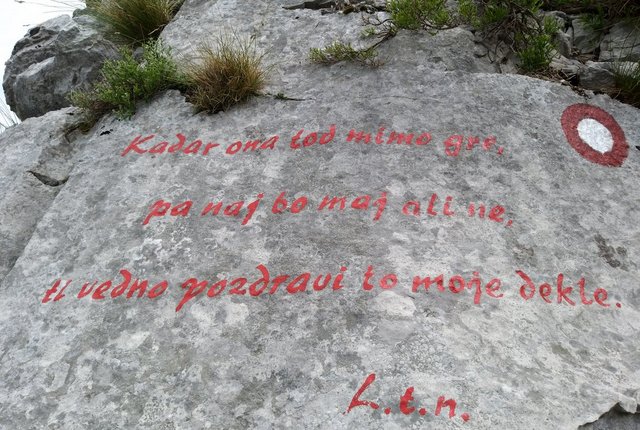 Kadar ona tod mimo gre,
pa naj bo maj ali ne,
ti vedno pozdravi to moje dekle.
L.t.n.